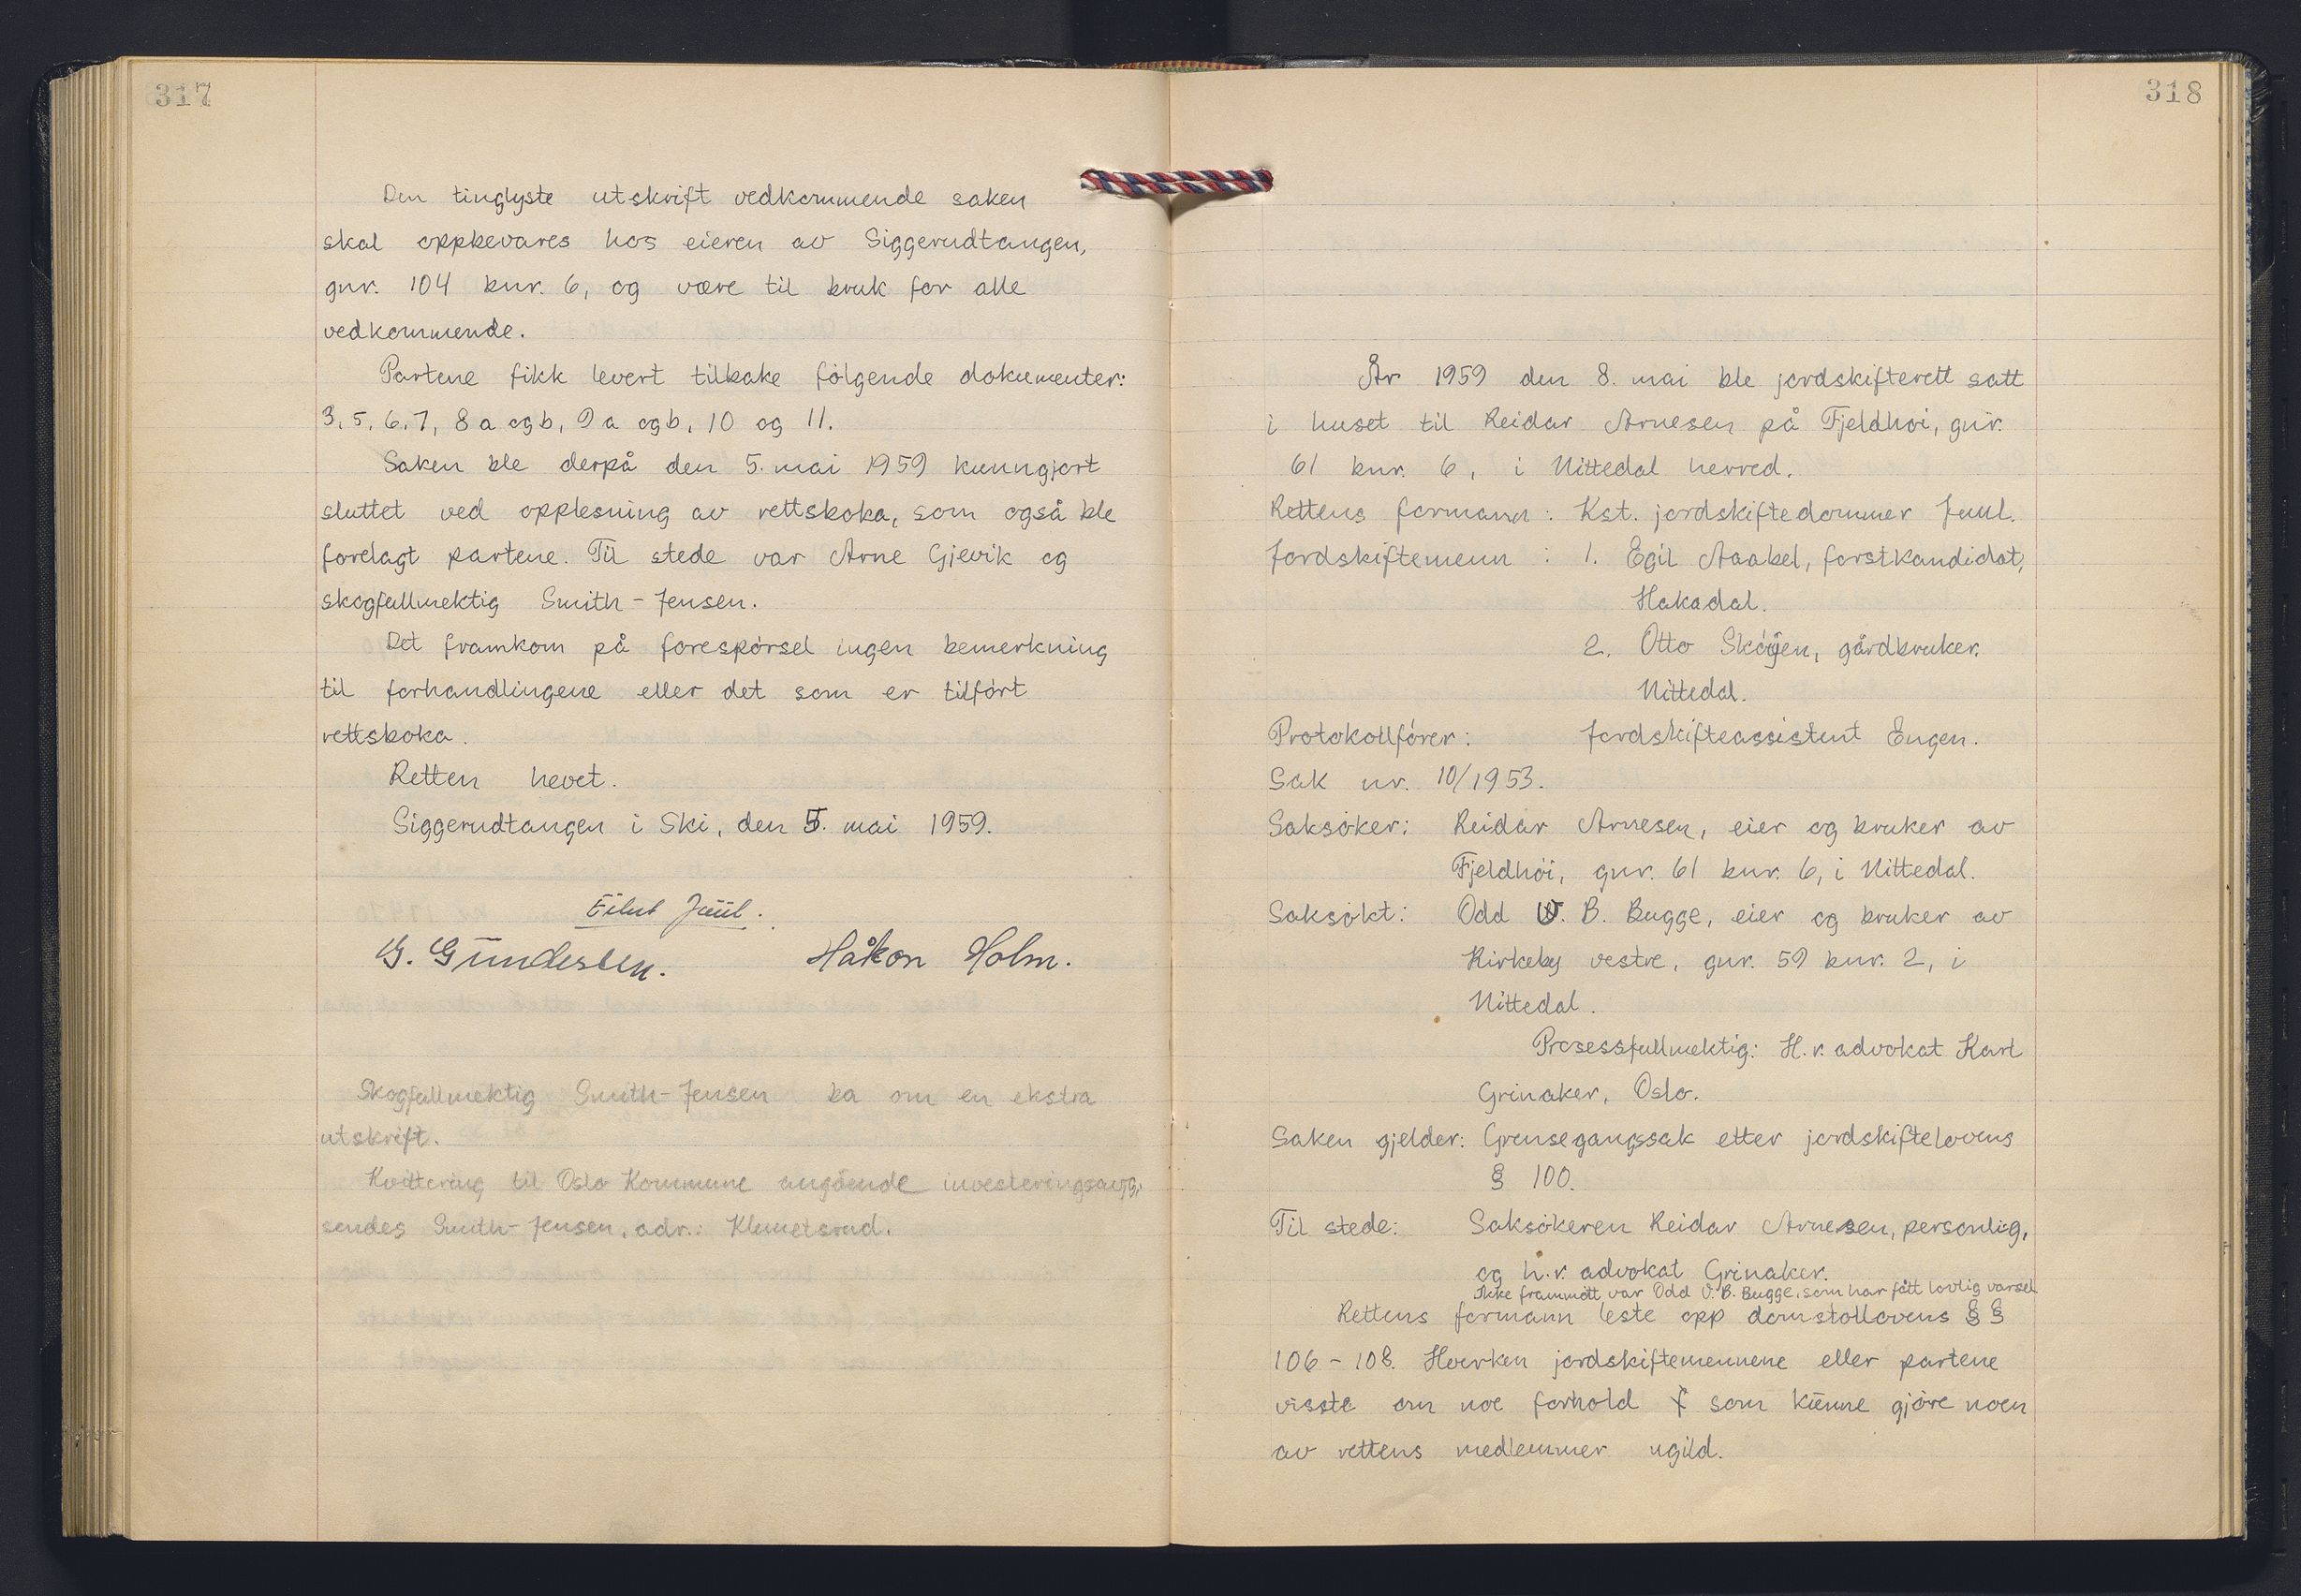 317
Den tinglyste utskrift vedkommende saken
skal oppbevares hos eieren av Siggerudtangen,
gnr. 104 bnr. 6, og være til bruk for alle
vedkommende.
Partene fikk levert tilbake følgende dokumenter:
3, 5, 6, 7, 8 a og b, 9 a og b, 10 og 11.
Saken ble derpå den 5. mai 1959 kunngjort
sluttet ved opplesning av rettsboka, som også ble
forelagt partene. Til stede var Arne Gjevik og
skogfullmektig Smith-Jensen.
Det framkom på forespørsel ingen bemerkning
til forhandlingene eller det som er tilført
rettsboka.
Retten hevet.
Siggerudtangen i Ski, den 5. mai 1959.
Eilut Juul.
G. Gundersen. Håkon Holm.
Skogfullmektig Smith-Jensen ba om en ekstra
utskrift.
Kvittering til Oslo Kommune angående investeringsavg.
sendes Smith-Jensen, adr.: Klemetsrud.
318
År 1959 den 8. mai ble jordskifterett satt
i huset til Reidar Arnesen på Fjeldhøi, gnr.
61 bnr. 6, i Nittedal herred.
Rettens formann: Kst. jordskiftedommer Juul.
Jordskiftemenn: 1. Egil Aaabel, forstkandidat,
Hakadal.
2. Otto Skøyen, gårdbruker,
Nittedal.
Protokollfører: Jordskifteassistent Engen.
Sak nr. 10/1953.
Saksøker: Reidar Arnesen, eier og bruker av
Fjeldhøi, gnr. 61 bnr. 6, i Nittedal.
Saksøkt: Odd V. B. Bugge, eier og bruker av
Kirkeby vestre, gnr. 59 bnr. 2, i
Nittedal.
Prosessfullmektig: H.r. advokat Karl
Grinaker, Oslo.
Saken gjelder: Grensegangssak etter jordskiftelovens
§ 100.
Til stede: Saksøkeren Reidar Arnesen, personlig,
og h.r. advokat Grinaker.
Ikke frammøtt var Odd V. B. Bugge, som har fått lovlig varsel
Rettens formann leste opp domstollovens § §
106 - 108. Hverken jordskiftemennene eller partene
visste om noe forhold som kunne gjøre noen
av rettens medlemmer ugild.